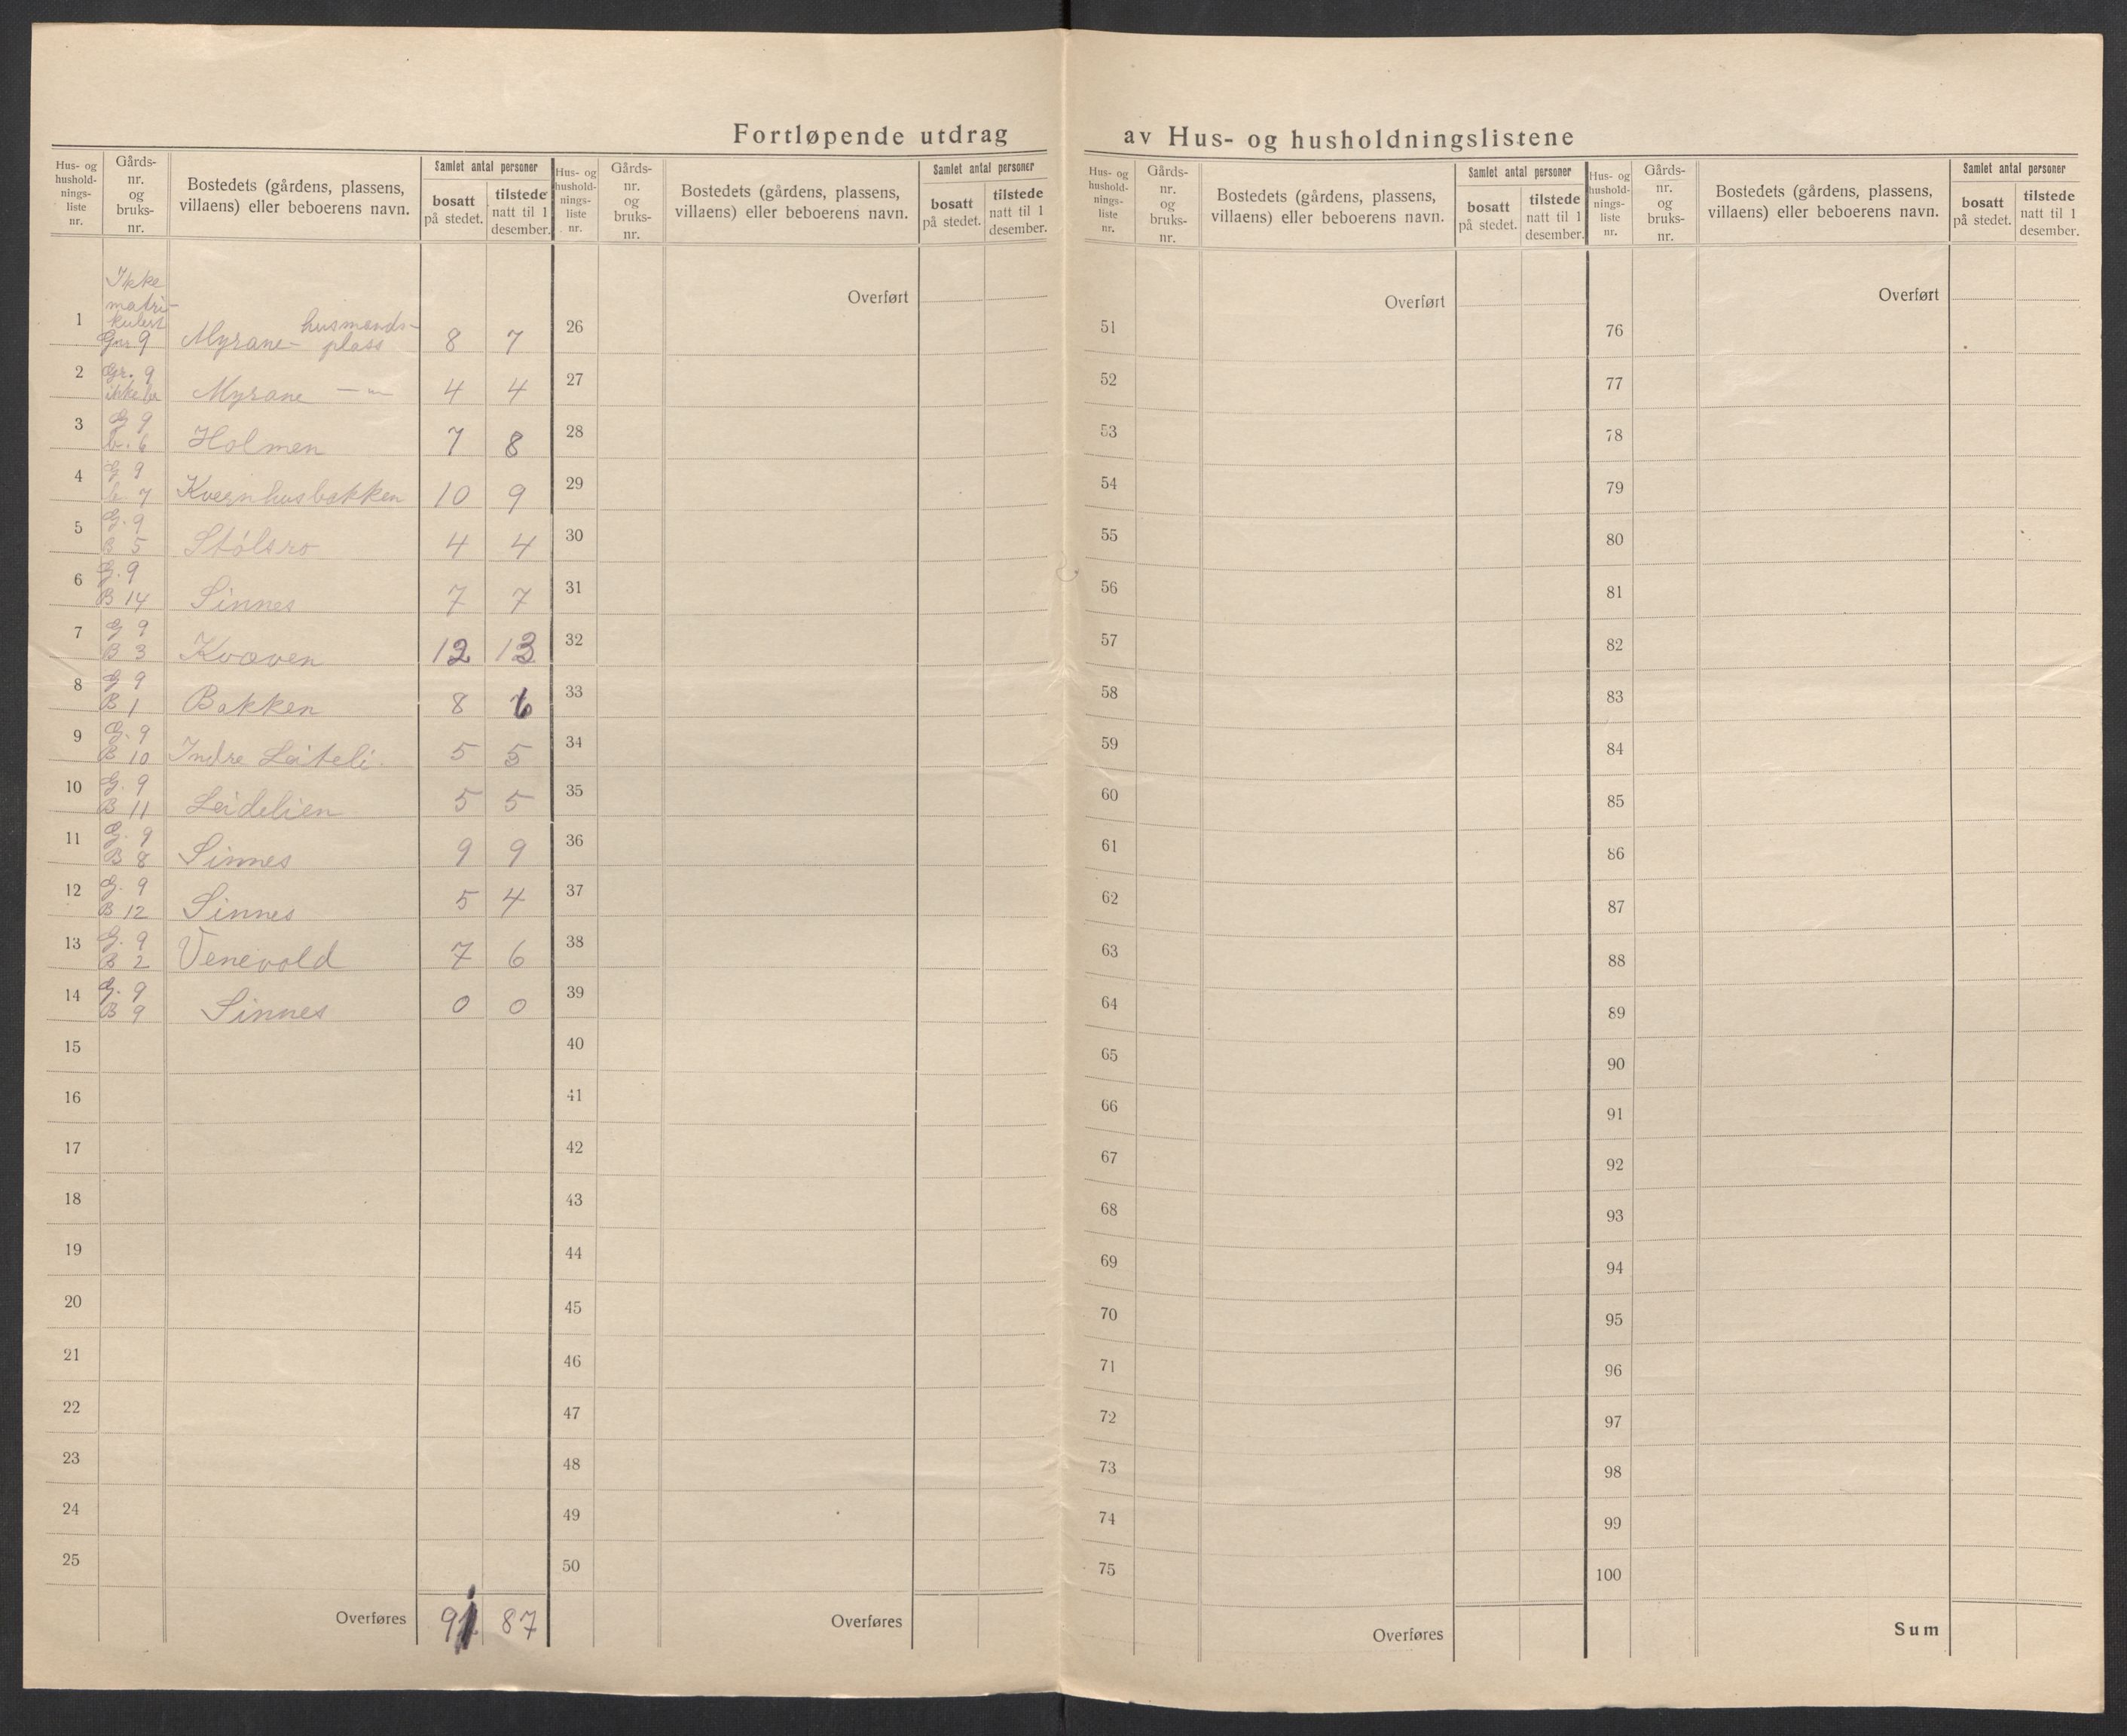 Fortløpende utdrag av Hus- og husholdningslistene
Hus- og hushold-nings-liste nr. | Gårds-nr. og bruks-nr. | Bostedets (gårdens, plassens, villaens) eller beboerens navn. | Samlet antal personer | bosatt på stedet. | tilstede natt til 1 desember.
1 Ikke matri-kulert Gnr 9 Myrane - husmands-plass 8 7
2 Gr. 9 ikke br Myrane —„— 4 4
3 G 9 b. 6 Holmen 7 8
4 G 9 b 7 Kvernhusbakken 10 9
5 G. 9 B 5 Stólsro 4 4
6 G. 9 B 14 Sinnes 7 7
7 G 9 B 3 Kvæven 12 13
8 G 9 B 1 Bakken 8 6
9 G. 9 B 10 Indre Leiteli 5 5
10 G. 9 B 11 Leidelien 5 5
11 G. 9 B 8 Sinnes 9 9
12 G. 9 B 12 Sinnes 5 4
13 G. 9 B 2 Venevold 7 6
14 G. 9 B 9 Sinnes 0 0
15
16
17
18
19
20
21
22
23
24
25
Overføres 91 87
Hus- og hushold-nings-liste nr. | Gårds-nr. og bruks-nr. | Bostedets (gårdens, plassens, villaens) eller beboerens navn. | Samlet antal personer | bosatt på stedet. | tilstede natt til 1 desember.
Overført
26
27
28
29
30
31
32
33
34
35
36
37
38
39
40
41
42
43
44
45
46
47
48
49
50
Overføres
Hus- og hushold-nings-liste nr. | Gårds-nr. og bruks-nr. | Bostedets (gårdens, plassens, villaens) eller beboerens navn. | Samlet antal personer | bosatt på stedet. | tilstede natt til 1 desember.
Overført
51
52
53
54
55
56
57
58
59
60
61
62
63
64
65
66
67
68
69
70
71
72
73
74
75
Overføres
Hus- og hushold-nings-liste nr. | Gårds-nr. og bruks-nr. | Bostedets (gårdens, plassens, villaens) eller beboerens navn. | Samlet antal personer | bosatt på stedet. | tilstede natt til 1 desember.
Overført
76
77
78
79
80
81
82
83
84
85
86
87
88
89
90
91
92
93
94
95
96
97
98
99
100
Sum